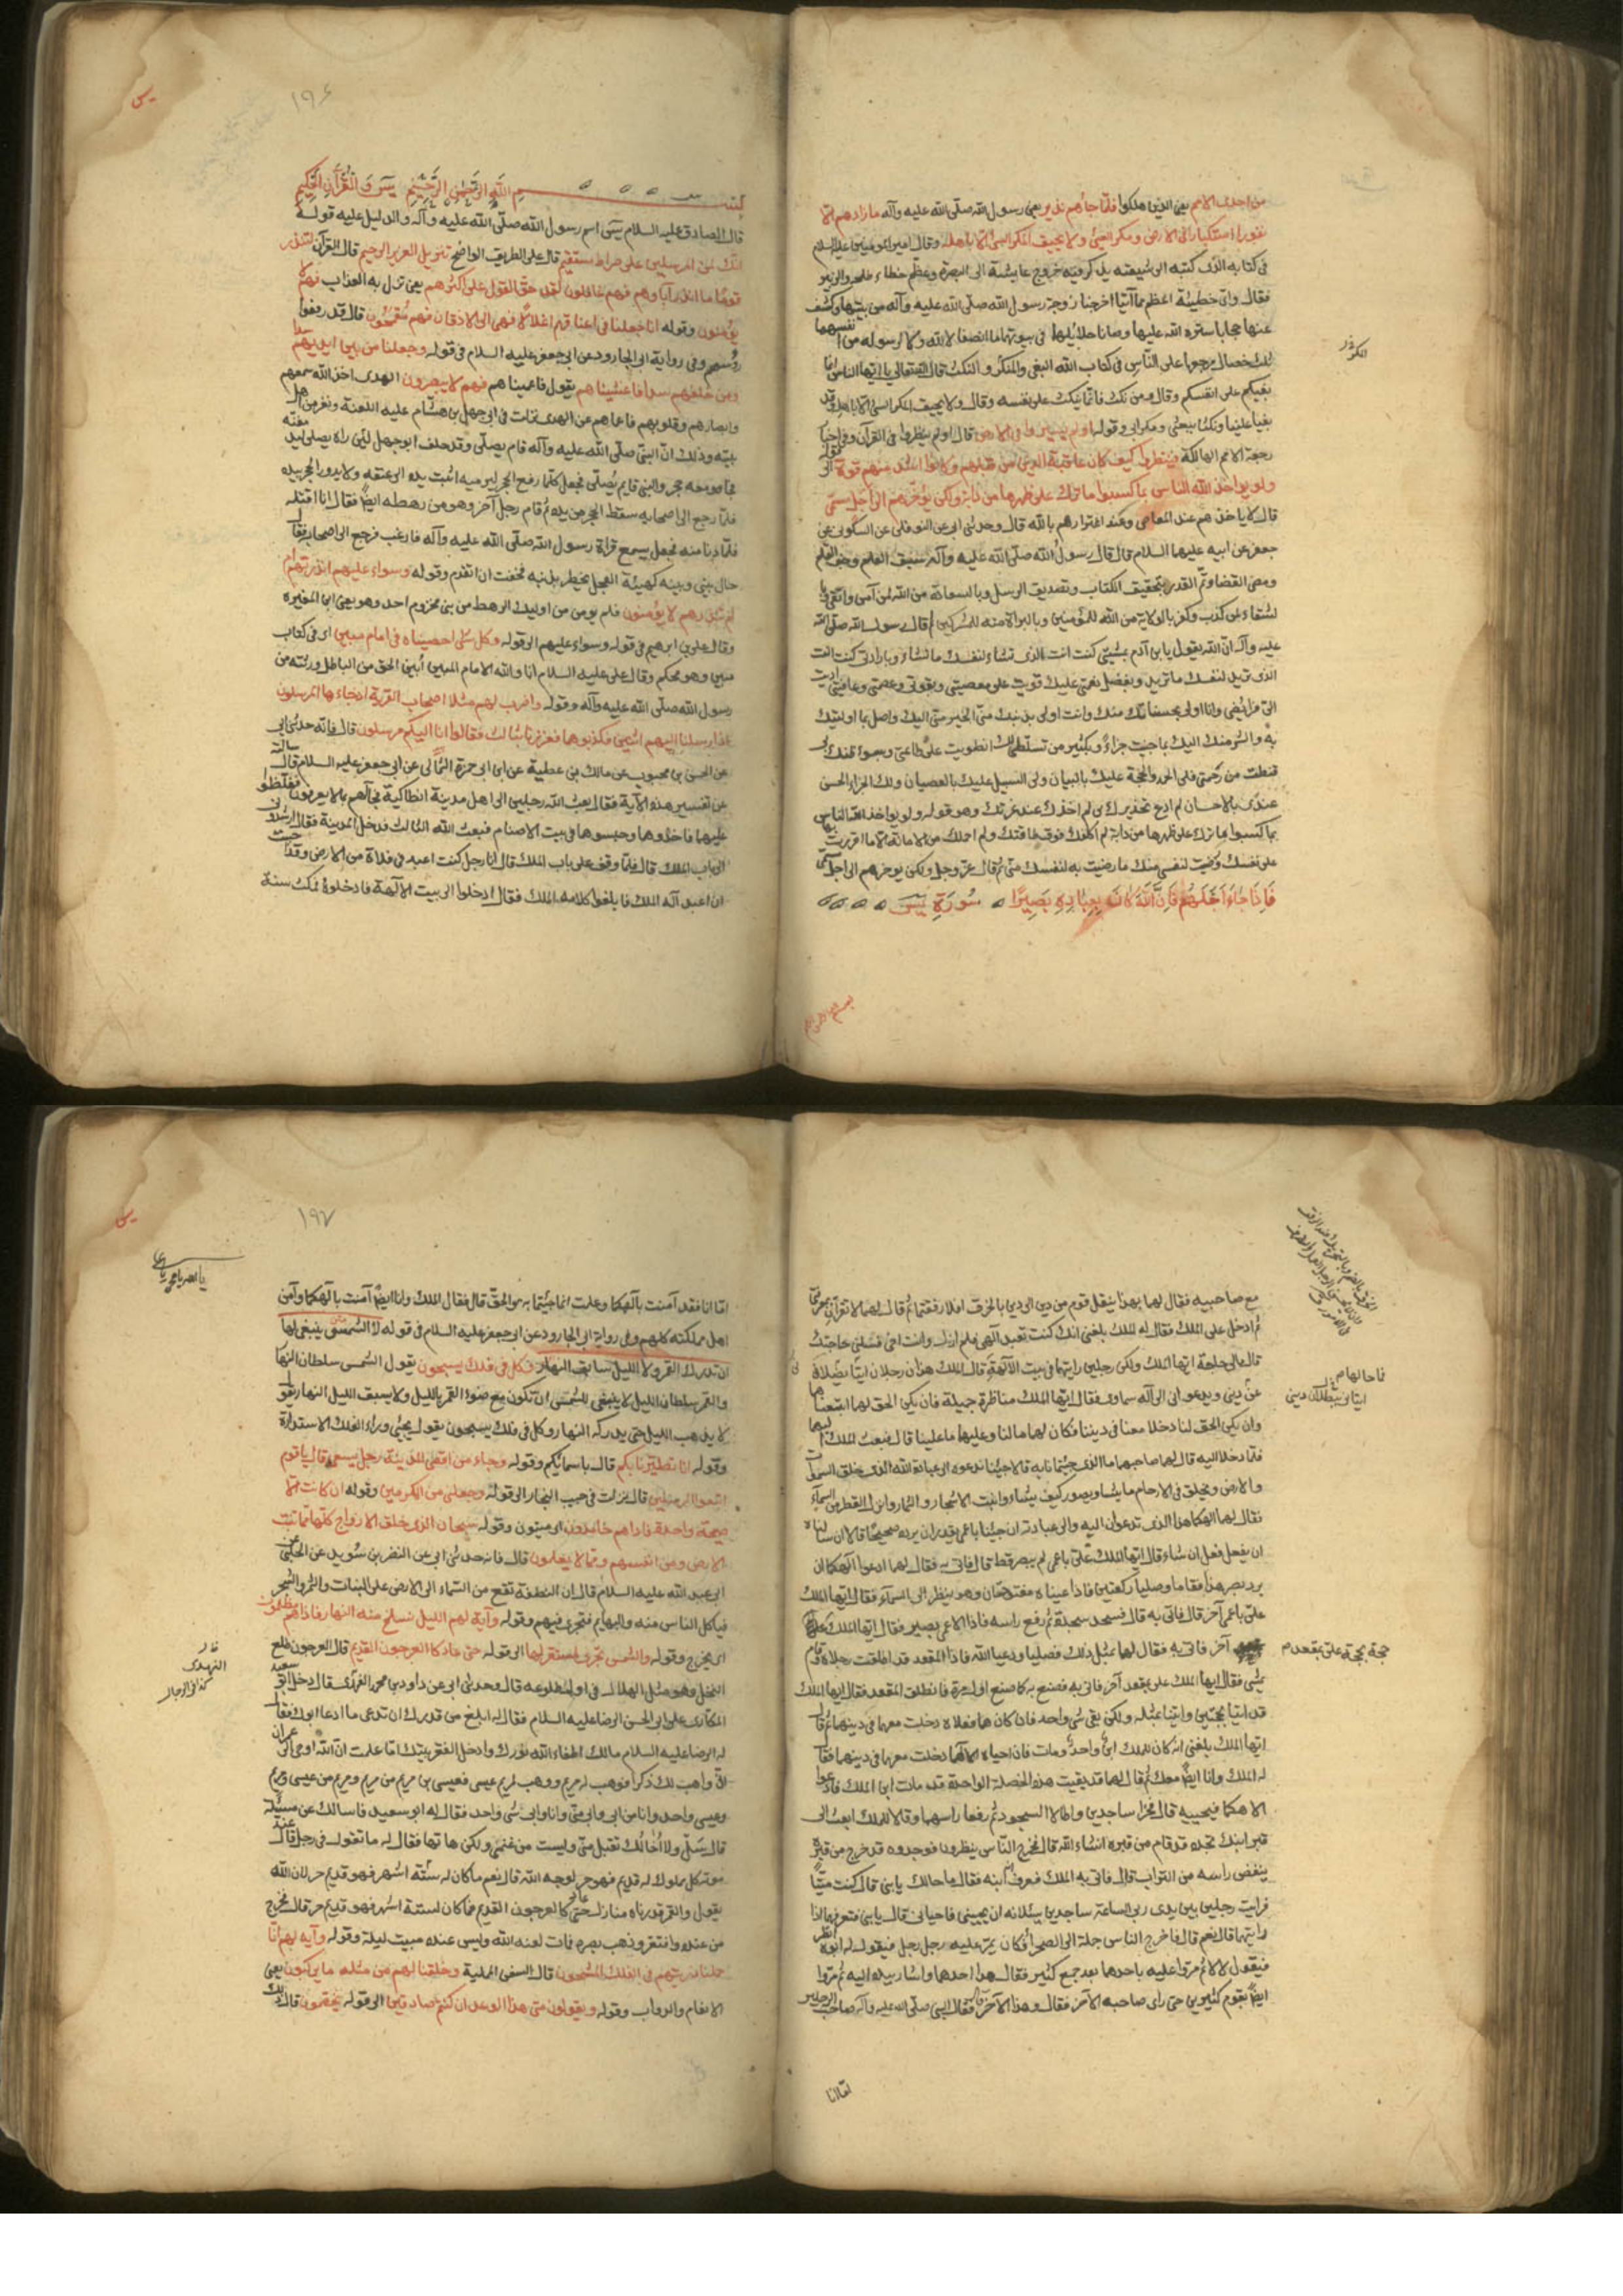 من احدى الامم يعنى الذين هلكوا فلمّا جاءهم نذير يعنى رسول الله صلّى الله عليه وآله ما زادهم الّا
نفورا استكبارا فى الارض ومكر السيّئ ولا يحيق المكر السيّئ الّا باهله وقال امير المومنين عليه السلام
فى كتابه الذى كتبه الى شيعته يذكر فيه خروج عايشة الى البصرة وعظم خطاء طلحه والزبير
فقال واىّ خطيئة اعظم مما اتيا اخرجا زوجة رسول الله صلّى الله عليه وآله من بيتها وكشف
عنها حجابا ستره الله عليها وصانا حلائلهما فى بيوتهما ما انصفا لا لله ولا لرسوله من انفسهما
ثلث خصال مرجعها على النّاس فى كتاب الله البغى والمكر والنكث قال الله تعالى يا ايها الناس انما
بغيكم على انفسكم وقال ومن نكث فانّما ينكث على نفسه وقال ولا يحيق المكر السيّئ الّا باهله وقد
بغيا علينا ونكثا بيعتى ومكرا بى وقوله اولم يسيروا فى الارض قال اولم ينظروا فى القرآن وفى اخبار
رجعة الامم الهالكة فينظروا كيف كان عاقبة الذين من قبلهم وكانوا اشد منهم قوة
ولو يواخذ الله الناس بما كسبوا ما ترك على ظهرها من دابة ولكن يؤخّرهم الى اجل مسمّى
قال لا ياخذهم عند المعاصى وعند اغترارهم بالله قال وحدثنى ابى عن النوفلى عن السكونى عن
جعفر عن ابيه عليهما السلام قال قال رسول الله صلّى الله عليه وآله سبق العلم وجفّ القلم
ومضى القضا وتمّ القدر بتحقيق الكتاب وتصديق الرسل وبالسعادة من الله لمن آمن واتقى
لشقاء لمن كذب وكفر بالولاية من الله للمؤمنين وبالبراءة منه للمشركين ثم قال رسول الله صلّى الله
عليه وآله انّ الله يقول يا بن آدم بمشيتى كنت انت الذى تشاء لنفسك ما تشاء وبارادتى كنت انت
الذى تريد لنفسك ما تريد وبفضل نعمتى عليك قويت على معصيتى وبقوتى وعصمتى وعافيتى اديت
الىّ فرائضى وانا اولى بحسناتك منك وانت اولى بذنبك منّى الخير منّى اليك واصل بما اوليتك
به والشر منك اليك بما جنيت جزاءً وبكثير من تسلّطى لك انطويت على طاعتى وبسوء ظنك بى
قنطت من رحمتى فلى الحمد والحجة عليك بالبيان ولى السبيل عليك بالعصيان ولك الجزاء الحسن
عندى بالاحسان لم ادع تحذيرك بى لم اخذك عند غرتك وهو قوله ولو يواخذ الله الناس
بما كسبوا ما ترك على ظهرها من دابة لم اكلفك فوق طاقتك ولم احملك من الامانة الا ما اقررت بها
على نفسك ورضيت لنفسى منك ما رضيت به لنفسك منّى ثم قال عزّ وجل ولكن يوخرهم الى اجل مسمّى
فَاِذَا جَاءَ اَجَلُهُمْ فَاِنَّ اللّٰهَ كَانَ بِعِبَادِهِ بَصِيرًا سُورَةِ يٓسٓ
١٩٦
يس
بسم الله الرحمن الرحيم يسٓ وَالْقُرْآنِ الْحَكِيمِ
قال الصادق عليه السلام يسٓ اسم رسول الله صلّى الله عليه وآله والدليل عليه قوله
انّك لمن المرسلين على صراط مستقيم قال على الطريق الواضح تنزيل العزيز الرحيم قال القرآن لتنذر
قومًا ما انذر آباوهم فهم غافلون لقد حق القول على اكثرهم يعنى نزل به العذاب فهم لا
يؤمنون وقوله انا جعلنا فى اعناقهم اغلالًا فهى الى الاذقان فهم مقمحون قال قد رفعوا
رؤسهم وفى رواية ابى الجارود عن ابى جعفر عليه السلام فى قوله وجعلنا من بين ايديهم سدا
ومن خلفهم سدا فاغشيناهم يقول فاعميناهم فهم لا يبصرون الهدى اخذ الله سمعهم
وابصارهم وقلوبهم فاعماهم عن الهدى نزلت فى ابى جهل بن هشام عليه اللعنة ونفر من اهل
بيته وذلك انّ النبى صلّى الله عليه وآله قام يصلّى وقد حلف ابو جهل لئن راه يصلى ليدمغنّه
فجا ومعه حجر والنبى قايم يُصلّى فجعل كلّما رفع الحجر ليرميه اثبت يده الى عنقه ولا يدور الحجر بيده
فلمّا رجع الى اصحابه سقط الحجر من يده ثم قام رجل آخر وهو من رهطه ايضًا فقال انا اقتله
فلمّا دنا منه فجعل يسمع قراة رسول الله صلّى الله عليه وآله فارعب فرجع الى اصحابه فقال
حال بينى وبينه كهيئة الفحل يخطر بذنبه فخفت ان اتقدم وقوله وسواء عليهم انذرتهم
ام لم تنذرهم لا يؤمنون فلم يومن من اوليك الرهط من بنى مخزوم احد وهو يعنى ابن المغيره
وقال على بن ابرهيم فى قوله وسواء عليهم الى قوله وكل شئ احصيناه فى امام مبين اى فى كتاب
مبين وهو محكم وقال على عليه السلام انا والله الامام المبين ابين الحق من الباطل ورثته من
رسول الله صلّى الله عليه وآله وقوله واضرب لهم مثلا اصحاب القرية اذ جاءها المرسلون
اذ ارسلنا اليهم اثنين فكذبوهما فعززنا بثالث فقالوا انا اليكم مرسلون قال فانه حدثنى ابى
عن الحسن بن محبوب عن مالك بن عطية عن ابى حمزة الثمالى عن ابى جعفر عليه السلام قال سالته
عن تفسير هذه الآية فقال بعث الله رجلين الى اهل مدينة انطاكية فجاآهم بما لا يعرفون فغلّظوا
عليهما فاخذوهما وحبسوهما فى بيت الاصنام فبعث الله الثالث فدخل المدينة فقال ارشدونى
الى باب الملك قال فلمّا وقف على باب الملك قال انا رجل كنت اعبد فى فلاة من الارض وقد احببت
ان اعبد آله الملك فابلغوا كلامه الملك فقال ادخلوا الى بيت الآلهة فادخلوه فمكث سنة
مع صاحبيه فقال لهما بهذا ينقل قوم من دين الى دين بالخرق افلا رفقتما ثم قال لهما لا تقرآن بمعرفتى
ثم ادخل على الملك فقال له الملك بلغنى انك كنت تعبد آلهى فلم ازل وانت اخى فسلنى حاجتك
قال مالى حاجة ايها الملك ولكن رجلين رايتهما فى بيت الآلهة قال الملك هذان رجلان اتيا يضلان
عن دينى ويدعوانى الى آله سماوى فقال ايها الملك مناظرة جميلة فان يكن الحق لهما اتبعناهما
وان يكن الحق لنا دخلا معنا فى ديننا فكان لهما مالنا وعليهما ما علينا قال فبعث الملك اليهما
فلمّا دخلا اليه قال لهما صاحبهما ما الذى جئتمانا به قالا جئنا ندعوه الى عبادة الله الذى خلق السموات
والارض ويخلق فى الارحام ما يشا ويصور كيف يشاء وانبت الاشجار والثمار وانزل القطر من السماء
فقال لهما الهكما هذا الذى تدعوان اليه والى عبادته ان جئنا باعمى يقدر ان يرده صحيحًا قالا ان سالناه
ان يفعل فعل ان شاء قال ايها الملك علىّ باعمى لم يبصر قط قال فاتى به فقال لهما ادعوا آلهكما ان
يرد بصر هذا فقاما وصليا ركعتين فاذا عيناه مفتوحتان وهو ينظر الى السمآء فقال ايها الملك
علىّ باعمى آخر قال فاتى به قال فسجد سجدة ثم رفع راسه فاذا الاعمى بصير فقال ايها الملك
آخر فاتى به فقال لهما بمثل ذلك فصليا ودعيا الله فاذا المقعد قد اطلقت رجلاه وقام
يمشى فقال ايها الملك على بمقعد آخر فاتى به فصنع به كما صنع اول مرة فانطلق المقعد فقال ايها الملك
قد اتيا بحجتين واتينا بمثله ولكن بقى شى واحد فان كان هما فعلاه دخلت معهما فى دينهما ثم قال
ايها الملك بلغنى انه كان للملك ابن واحد ومات فان احياه الهما دخلت معهما فى دينهما فقال
له الملك وانا ايضًا معك ثم قال لهما قد بقيت هذه الخصلة الواحدة قد مات ابن الملك فادعوا
الاهكما فيحييه قال فخرا ساجدين واطالا السجود ثم رفعا راسهما وقالا للملك ابعث الى
قبر ابنك تجده قد قام من قبره انشاء الله قال فخرج النّاس ينظرون فوجدوه قد خرج من قبره
ينفض راسه من التراب قال فاتى به الملك فعرف انه ابنه فقال ما حالك يا بنى قال كنت ميتًا
فرايت رجلين بين يدى ربى الساعة ساجدين يسئلانه ان يحيينى فاحيانى قال يا بنى فتعرفهما اذا
رايتهما قال نعم قال فاخرج الناس جملة الى الصحرا فكان يمرّ عليه رجل رجل فيقول له ابوه انظر
فيقول لا لا ثم مرّوا عليه باحدهما بعد جمع كثير فقال هذا احدهما واشار بيده اليه ثم مرّوا
ايضًا بقوم كثيرين حتى راى صاحبه الآخر فقال وهذا الآخر فقال النبى صلّى الله عليه وآله صاحب الرجلين
امّا انا
١٩٧
يس
امّا انا فقد آمنت بآلهكما وعلمت انما جئتما به هو الحق قال فقال الملك وانا ايضًا آمنت بآلهكما وآمن
اهل مملكته كلهم وفى رواية ابى الجارود عن ابى جعفر عليه السلام فى قوله لا الشمس ينبغى لها
ان تدرك القمر ولا الليل سابق النهار وكل فى فلك يسبحون يقول الشمس سلطان النهار
والقمر سلطان الليل لا ينبغى للشمس ان تكون مع ضوء القمر بالليل ولا يسبق الليل النهار يقول
لا يذهب الليل حتى يدركه النهار وكل فى فلك يسبحون يقول يجئى وراء الفلك الاستدارة
وقوله انا تطيّرنا بكم قال باسمائكم وقوله وجاء من اقصى المدينة رجل يسعى قال يا قوم
اتبعوا المرسلين قال نزلت فى حبيب النجار الى قوله وجعلنى من المكرمين وقوله ان كانت الّا
صيحة واحدة فاذا هم خامدون اى ميتون وقوله سبحان الذى خلق الازواج كلها مما تنبت
الارض ومن انفسهم ومما لا يعلمون قال فانه حدثنى ابى عن النضر بن سويد عن الحلبى عن
ابى عبد الله عليه السلام قال ان النطفة تقع من السّماء الى الارض على النبات والثمر والشجر
فياكل الناس منه والبهايم فتجرى فيهم وقوله وآية لهم الليل نسلخ منه النهار فاذا هم مظلمون
اى يخرج وقوله والشمس تجرى لمستقر لها الى قوله حتى عاد كالعرجون القديم قال العرجون طلع
النخل وهو مثل الهلال فى اول طلوعه قال وحدثنى ابى عن داود بن محمد النهدى قال دخل ابو سعيد
المكارى على ابى الحسن الرضا عليه السلام فقال له ابلغ من قدرك ان تدعى ما ادعا ابوك فقال
له الرضا عليه السلام مالك اطفاء الله نورك وادخل الفقر بيتك اما علمت ان الله اوحى الى عمران
انّى واهب لك ذكرا فوهب له مريم ووهب لمريم عيسى فعيسى بن مريم من مريم ومريم من عيسى ومريم
وعيسى واحد وانا من ابى وابى منّى وانا وابى شئ واحد فقال له ابو سعيد فاسالك عن مسئلة
قال سَلْ ولا اخالك تقبل منّى ولست من غنمى ولكن هاتها فقال له ما تقول فى رجل قال عند
موته كل مملوك له قديم فهو حر لوجه الله قال نعم ما كان له ستّة اشهر فهو قديم حر لان الله
يقول والقمر قدرناه منازل حتى عاد كالعرجون القديم فما كان لستة اشهر فهو قديم حر قال فخرج
من عنده وافتقر وذهب بصره فمات لعنه الله وليس عنده مبيت ليلة وقوله وآية لهم انّا
حملنا ذريتهم فى الفلك المشحون قال السفن المملية وخلقنا لهم من مثله ما يركبون يعنى
الانعام والدواب وقوله ويقولون متى هذا الوعد ان كنتم صادقين الى قوله يخصّمون قال ذلك